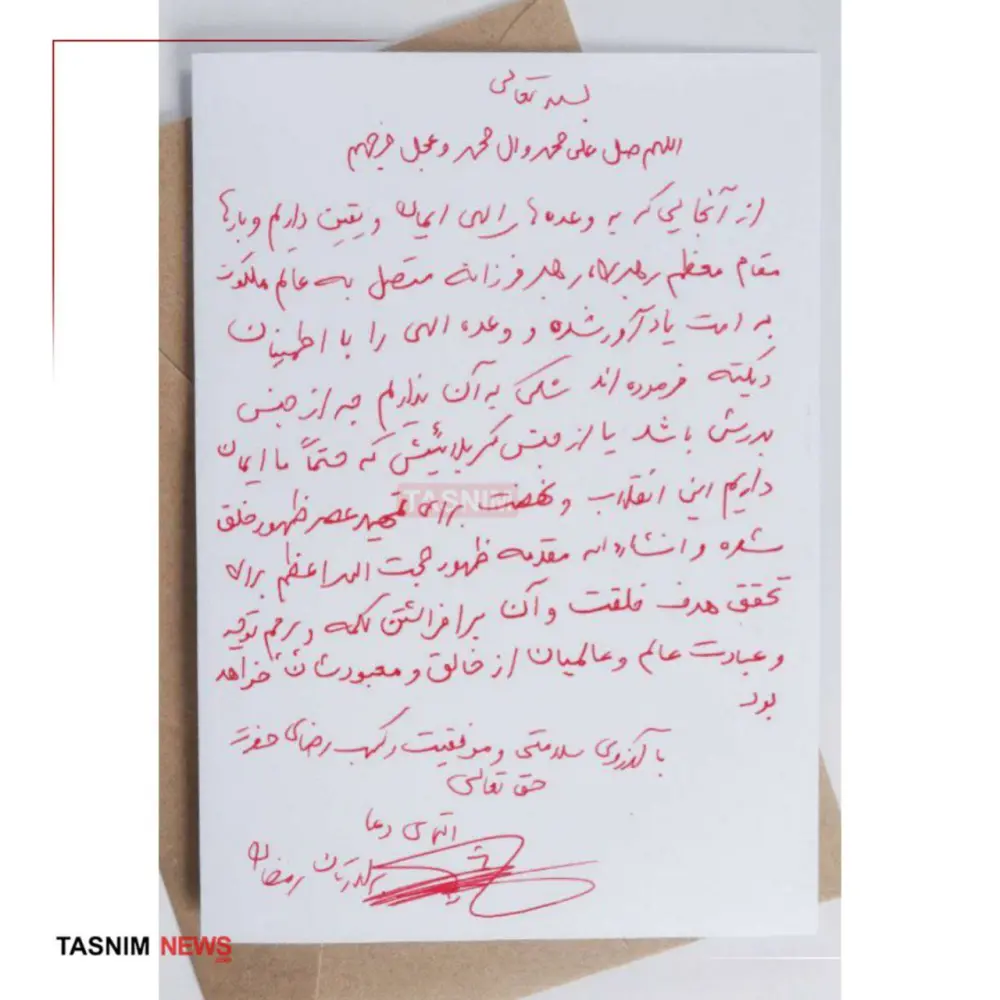 بسمه تعالی
اللهم صل علی محمد وال محمد وعجل فرجهم
از آنجایی که به وعده های الهی ایمان و یقین داریم و بارها
مقام معظم رهبری، رهبر فرزانه متصل به عالم ملکوت
به امت یادآور شده و وعده الهی را با اطمینان
دیکته فرموده اند شکی به آن نداریم چه از جنس
بدرش باشد یا از جنس کربلائیش که حتماً ما ایمان
داریم این انقلاب و نهضت برای تمهید عصر ظهور خلق
شده و انشاءاله مقدمه ظهور حجت اله اعظم برای
تحقق هدف خلقت و آن برافراشتن کلمه و پرچم توحید
و عبادت عالم و عالمیان از خالق و معبودشان خواهد
بود
با آرزوی سلامتی و موفقیت و کسب رضای حضرت
حق تعالی
التماس دعا
برادرتان رمضان
TASNIM
TASNIM NEWS
.com